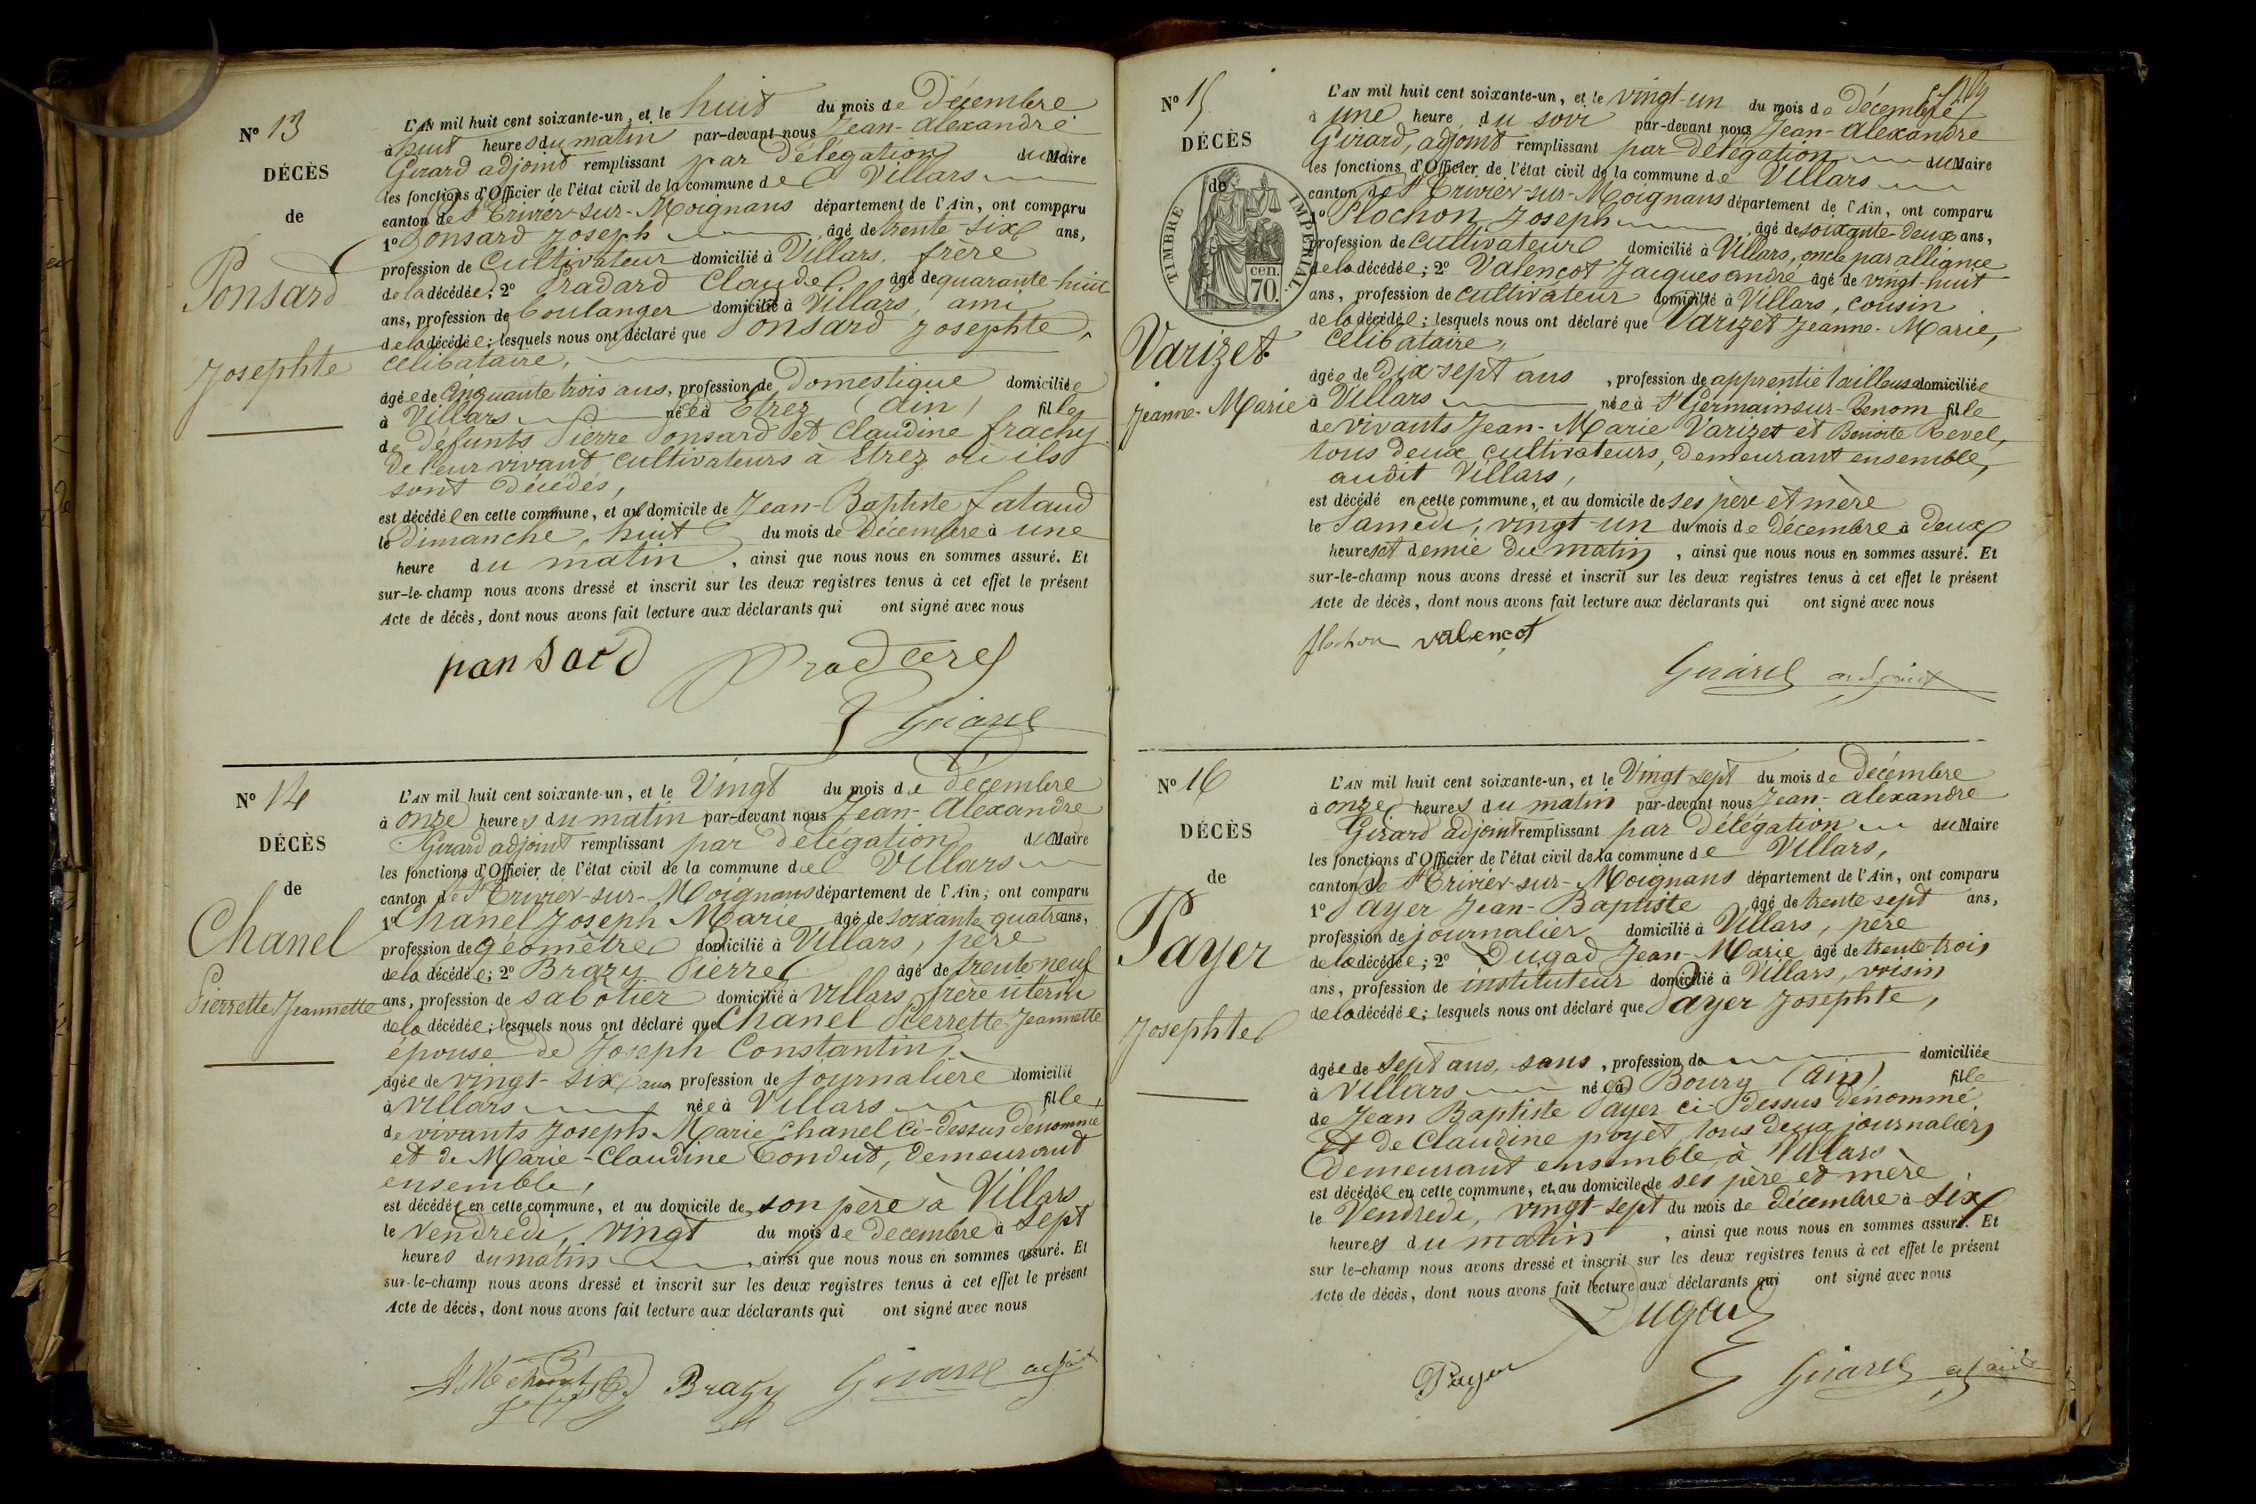 Nº 13
DÉCÈS
de
Ponsard
Josephte
L'AN mil huit cent soixante-un, et le huit du mois de Décembre
à huit heures du matin par-devant nous Jean-Alexandre
Girard adjoint remplissant par Délégation du Maire
les fonctions d'Officier de l'état civil de la commune de Villars
canton de St Trivier-sur-Moignans département de l'Ain, ont comparu
1º Ponsard Joseph âgé de trente-six ans,
profession de Cultivateur domicilié à Villars, frère
de la décédée; 2º Pradard Claude âgé de quarante-huit
ans, profession de boulanger domicilié à Villars, ami
de la décédée; lesquels nous ont déclaré que Ponsard Josephte,
célibataire,
âgée de cinquante trois ans, profession de Domestique domiciliée
à Villars née à Etrez (Ain) fille
de défunts Pierre Ponsard et Claudine frachy
de leur vivant cultivateurs à Etrez où ils
sont décédés,
est décédée en cette commune, et au domicile de Jean-Baptiste Lataud
le Dimanche, huit du mois de Décembre à une
heure du matin, ainsi que nous nous en sommes assuré. Et
sur-le-champ nous avons dressé et inscrit sur les deux registres tenus à cet effet le présent
Acte de décès, dont nous avons fait lecture aux déclarants qui ont signé avec nous
pansard Pradard
Girard
Nº 14
DÉCÈS
de
Chanel
Pierrette Jeannette
L'AN mil huit cent soixante-un, et le Vingt du mois de Décembre
à onze heures du matin par-devant nous Jean-Alexandre
Girard adjoint remplissant par délégation du Maire
les fonctions d'Officier de l'état civil de la commune de Villars
canton de St Trivier-sur-Moignans département de l'Ain, ont comparu
1º Chanel Joseph Marie âgé de soixante quatre ans,
profession de géomètre domicilié à Villars, père
de la décédée; 2º Brazy Pierre âgé de trente-neuf
ans, profession de sabotier domicilié à Villars, frère utérin
de la décédée; lesquels nous ont déclaré que Chanel Pierrette Jeannette
épouse de Joseph Constantin,
âgée de vingt-six ans profession de journalière domicilié
à Villars née à Villars fille
de vivants Joseph Marie Chanel ci-dessus dénommé
et de Marie-Claudine Conduit, demeurant
ensemble,
est décédée en cette commune, et au domicile de son père à Villars
le vendredi, vingt du mois de décembre à sept
heures du matin, ainsi que nous nous en sommes assuré. Et
sur-le-champ nous avons dressé et inscrit sur les deux registres tenus à cet effet le présent
Acte de décès, dont nous avons fait lecture aux déclarants qui ont signé avec nous
Brazy Girard adjoint
Nº 15
DÉCÈS
de
TIMBRE IMPÉRIAL
cen.
70.
Varizet
Jeanne-Marie
L'AN mil huit cent soixante-un, et le vingt-un du mois de décembre
à une heure du soir par-devant nous Jean-Alexandre
Girard, adjoint remplissant par délégation du Maire
les fonctions d'Officier de l'état civil de la commune de Villars
canton de St Trivier-sur-Moignans département de l'Ain, ont comparu
1º Plochon Joseph, âgé de soixante-deux ans,
profession de cultivateur domicilié à Villars, oncle par alliance
de la décédée; 2º Valençot Jacques andré âgé de vingt-huit
ans, profession de cultivateur domicilié à Villars, cousin
de la décédée; lesquels nous ont déclaré que Varizet Jeanne-Marie,
célibataire,
âgée de dix-sept ans, profession de apprentie tailleuse domiciliée
à Villars née à St Germain sur-Renom fille
de vivants Jean-Marie Varizet et Benoite Revel,
tous deux cultivateurs, demeurant ensemble,
audit Villars,
est décédé en cette commune, et au domicile de ses père et mère
le Samedi, vingt-un du mois de décembre à deux
heures et demie du matin, ainsi que nous nous en sommes assuré. Et
sur-le-champ nous avons dressé et inscrit sur les deux registres tenus à cet effet le présent
Acte de décès, dont nous avons fait lecture aux déclarants qui ont signé avec nous
Plochon valençot
Girard adjoint
Nº 16
DÉCÈS
de
Payer
Josephte
L'AN mil huit cent soixante-un, et le Vingt sept du mois de décembre
à onze heures du matin par-devant nous Jean-alexandre
Girard adjoint remplissant par délégation du Maire
les fonctions d'Officier de l'état civil de la commune de Villars,
canton de St Trivier-sur-Moignans département de l'Ain, ont comparu
1º Payer Jean-Baptiste âgé de trente sept ans,
profession de journalier domicilié à Villars, père
de la décédée; 2º Dugad Jean-Marie âgé de trente-trois
ans, profession de instituteur domicilié à Villars, voisin
de la décédée; lesquels nous ont déclaré que Payer Josephte,
âgée de sept ans, sans, profession de domiciliée
à Villars née à Bourg (Ain) fille
de Jean Baptiste Payer ci-dessus dénommé
et de Claudine poyet, tous deux journaliers
demeurant ensemble à Villars
est décédée en cette commune, et au domicile de ses père et mère
le Vendredi, vingt-sept du mois de décembre à six
heures du matin, ainsi que nous nous en sommes assuré. Et
sur le-champ nous avons dressé et inscrit sur les deux registres tenus à cet effet le présent
Acte de décès, dont nous avons fait lecture aux déclarants qui ont signé avec nous
Dugad
Payer Girard adjoint